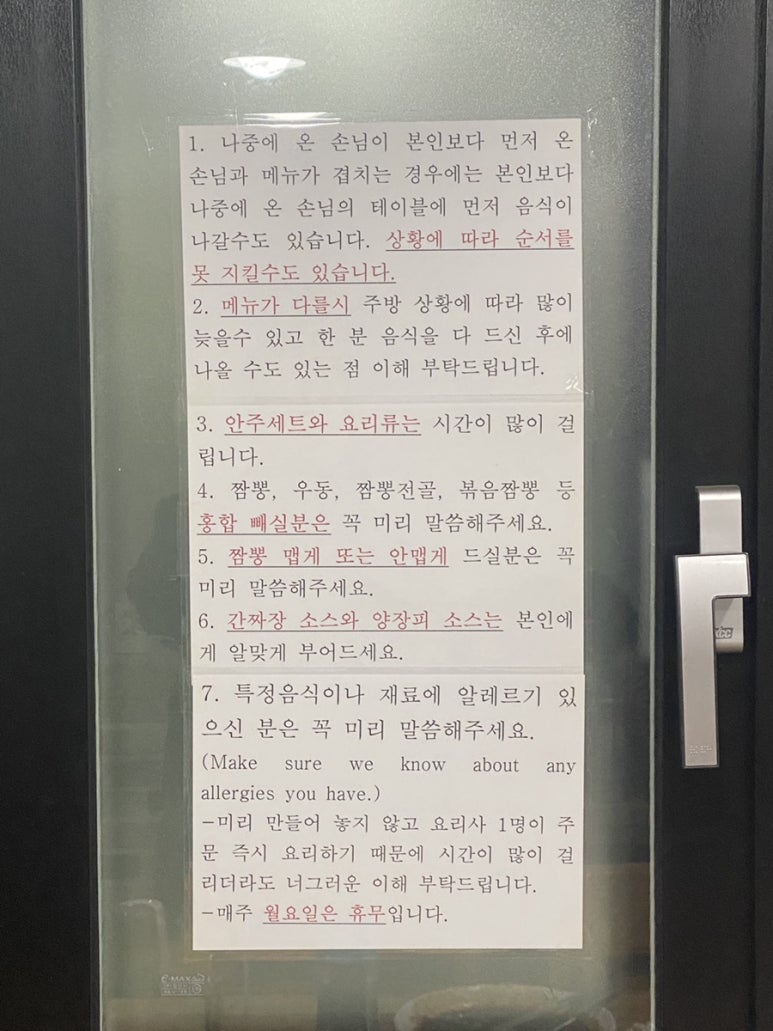 1. 나중에 온 손님이 본인보다 먼저 온
손님과 메뉴가 겹치는 경우에는 본인보다
나중에 온 손님의 테이블에 먼저 음식이
나갈수도 있습니다. 상황에 따라 순서를
못 지킬수도 있습니다.
2. 메뉴가 다를시 주방 상황에 따라 많이
늦을수 있고 한 분 음식을 다 드신 후에
나올 수도 있는 점 이해 부탁드립니다.
3. 안주세트와 요리류는 시간이 많이 걸
립니다.
4. 짬뽕, 우동, 짬뽕전골, 볶음짬뽕 등
홍합 빼실분은 꼭 미리 말씀해주세요.
5. 짬뽕 맵게 또는 안맵게 드실분은 꼭
미리 말씀해주세요.
6. 간짜장 소스와 양장피 소스는 본인에
게 알맞게 부어드세요.
7. 특정음식이나 재료에 알레르기 있
으신 분은 꼭 미리 말씀해주세요.
(Make sure we know about any
allergies you have.)
-미리 만들어 놓지 않고 요리사 1명이 주
문 즉시 요리하기 때문에 시간이 많이 걸
리더라도 너그러운 이해 부탁드립니다.
-매주 월요일은 휴무입니다.
KCC